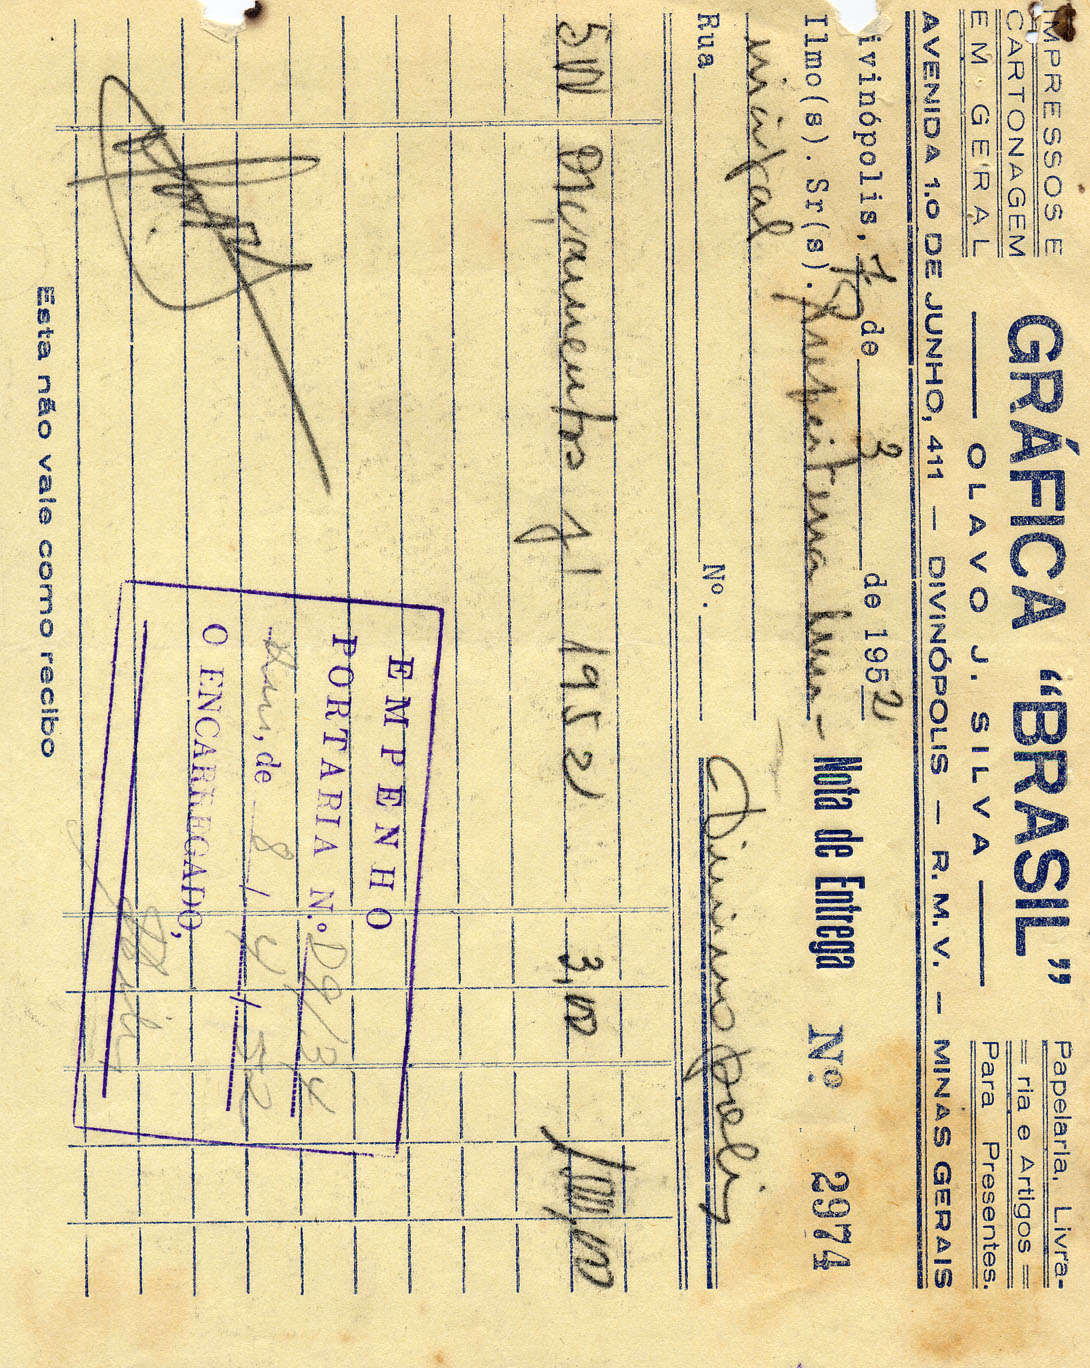 IMPRESSOS E
CARTONAGEM
EM GERAL
GRÁFICA “BRASIL”
OLAVO J. SILVA
Papelaria, Livra-
ria e Artigos
Para Presentes.
AVENIDA 1.o DE JUNHO, 411 — DIVINÓPOLIS — R. M. V. — MINAS GERAIS
ivinópolis, 7 de 3 de 1952
Nota de Entrega Nº 2974
Ilmo(s). Sr(s). Prefeitura Mun-
nicipal
Divinopolis
Rua Nº.
500 Orçamentos p/ 1952 3,00
EMPENHO
PORTARIA N.º D9/34
de 8/4/52
O ENCARREGADO,
Esta não vale como recibo